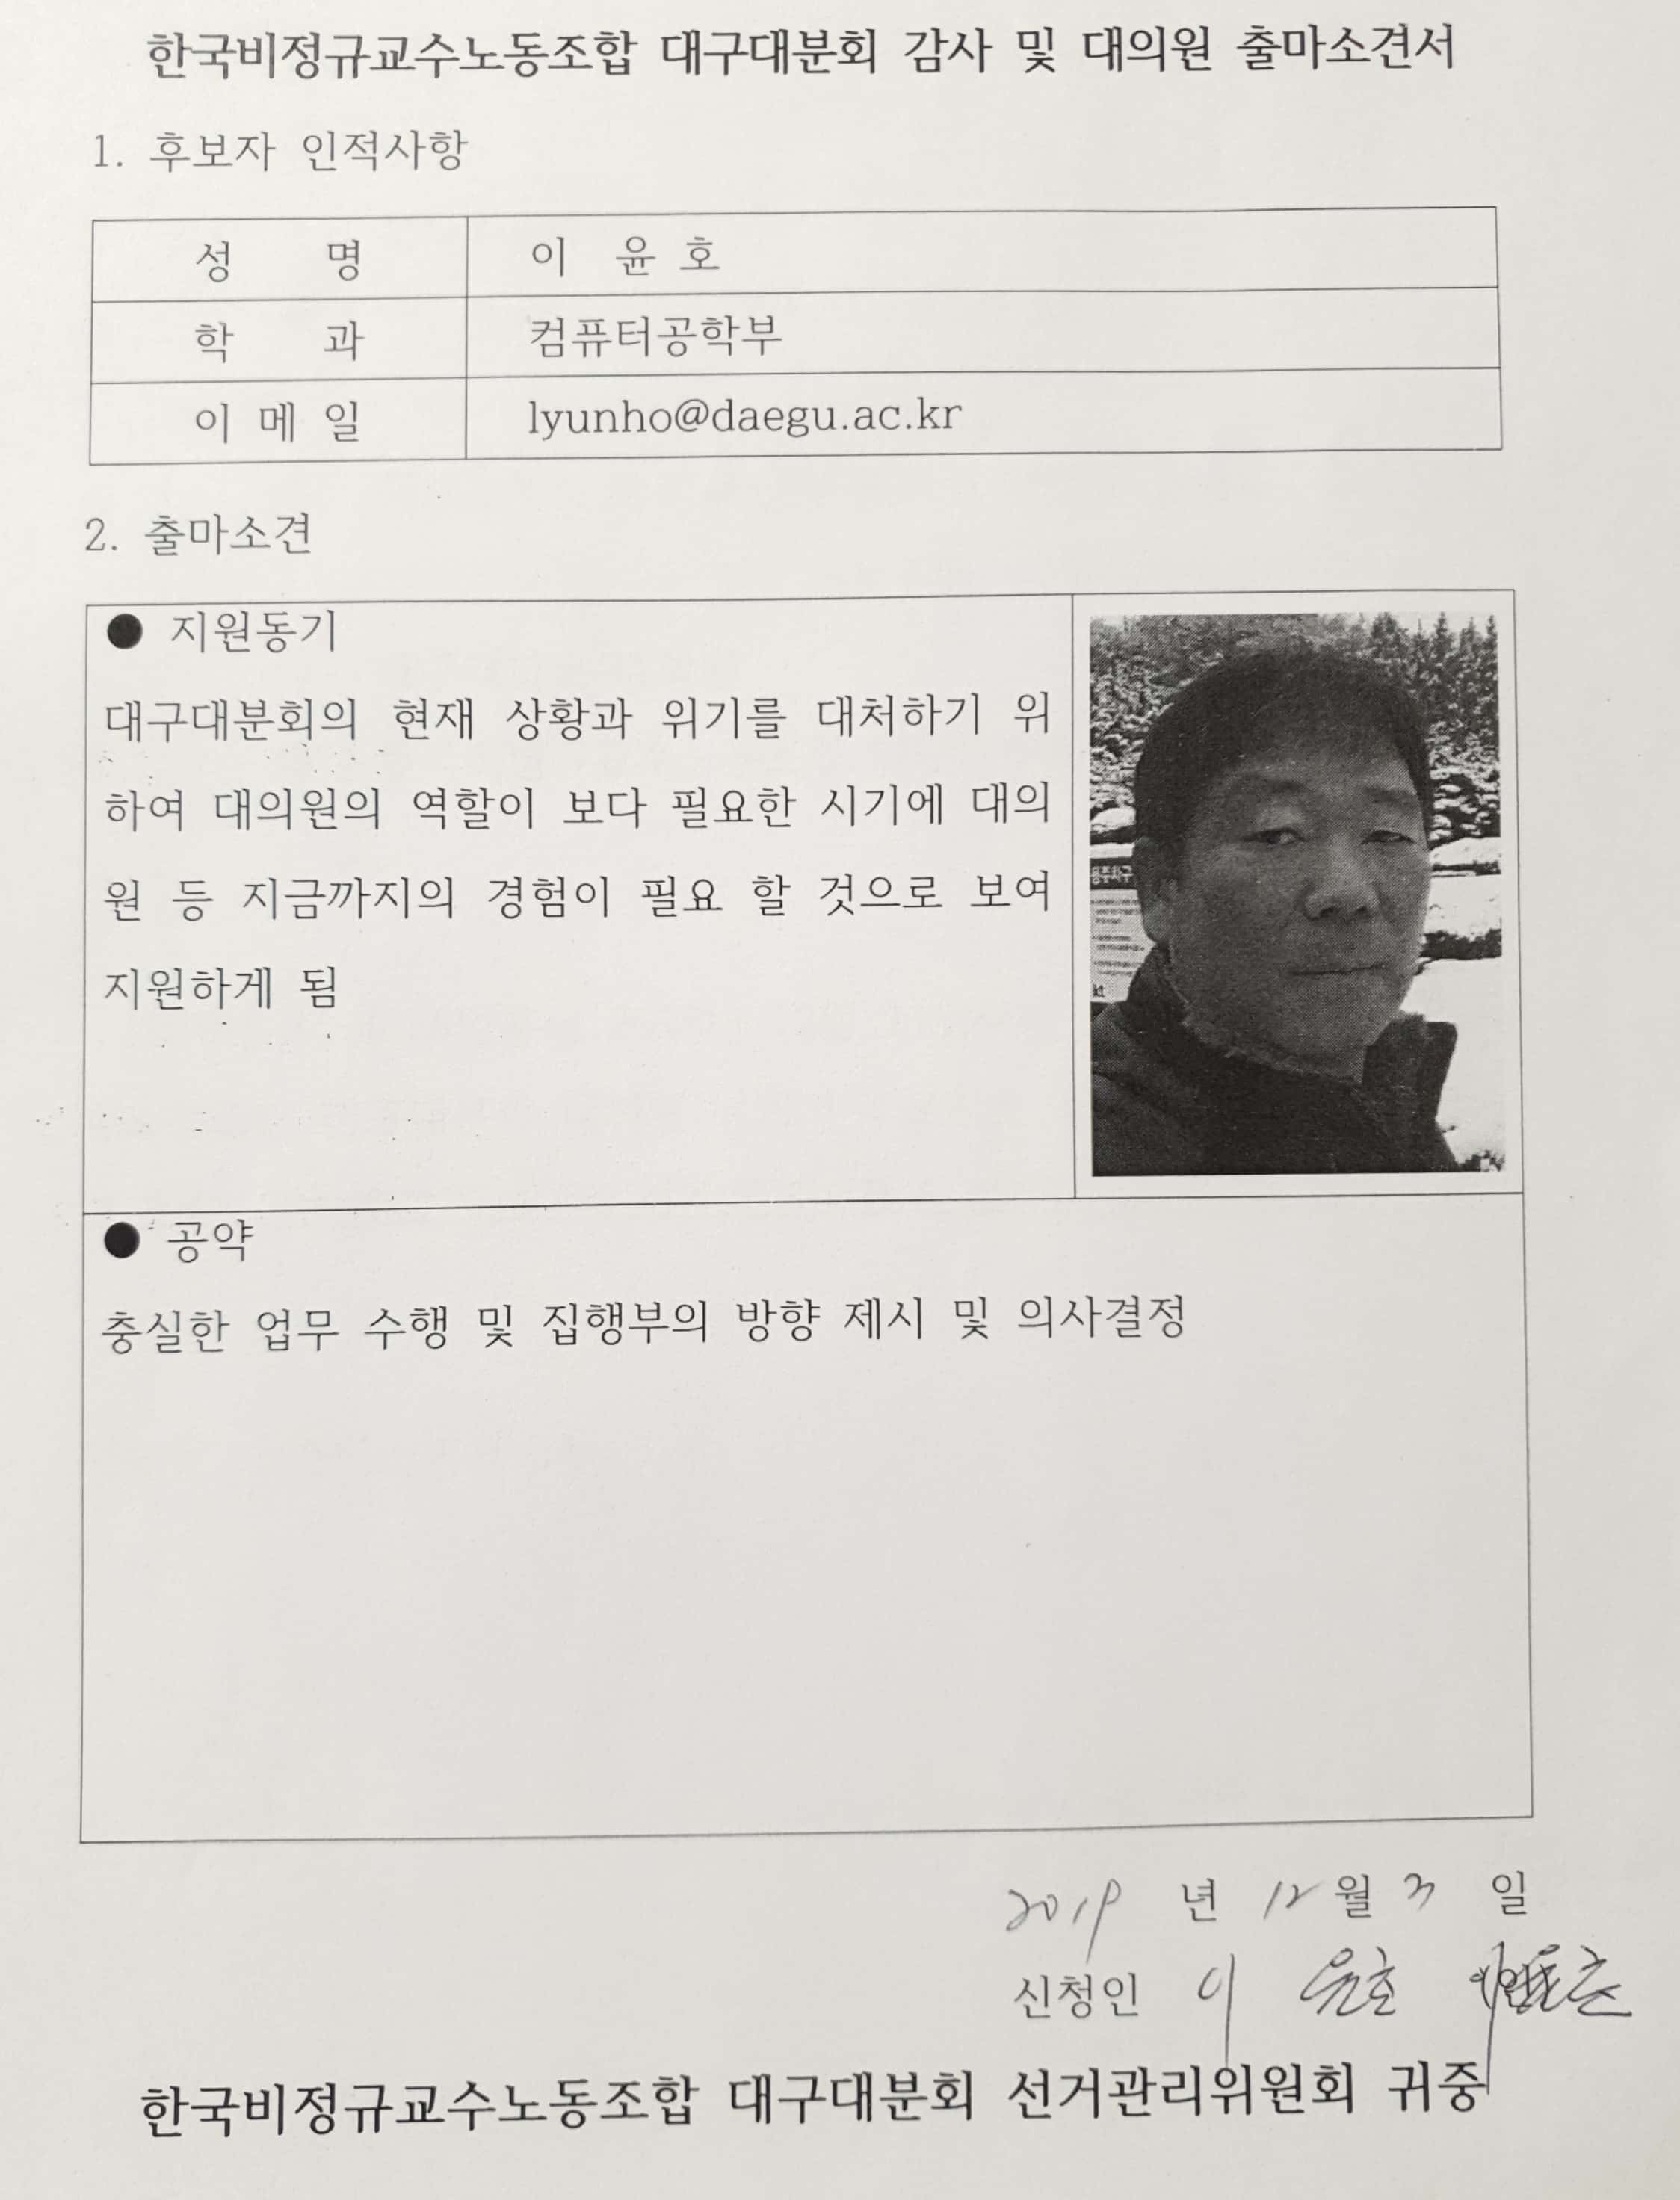 한국비정규교수노동조합 대구대분회 감사 및 대의원 출마소견서
1. 후보자 인적사항
성 명 이 윤 호
학 과 컴퓨터공학부
이 메 일 lyunho@daegu.ac.kr
2. 출마소견
● 지원동기
대구대분회의 현재 상황과 위기를 대처하기 위
하여 대의원의 역할이 보다 필요한 시기에 대의
원 등 지금까지의 경험이 필요 할 것으로 보여
지원하게 됨
kt
● 공약
충실한 업무 수행 및 집행부의 방향 제시 및 의사결정
2019 년 12 월 3 일
신청인 이 윤호
한국비정규교수노동조합 대구대분회 선거관리위원회 귀중